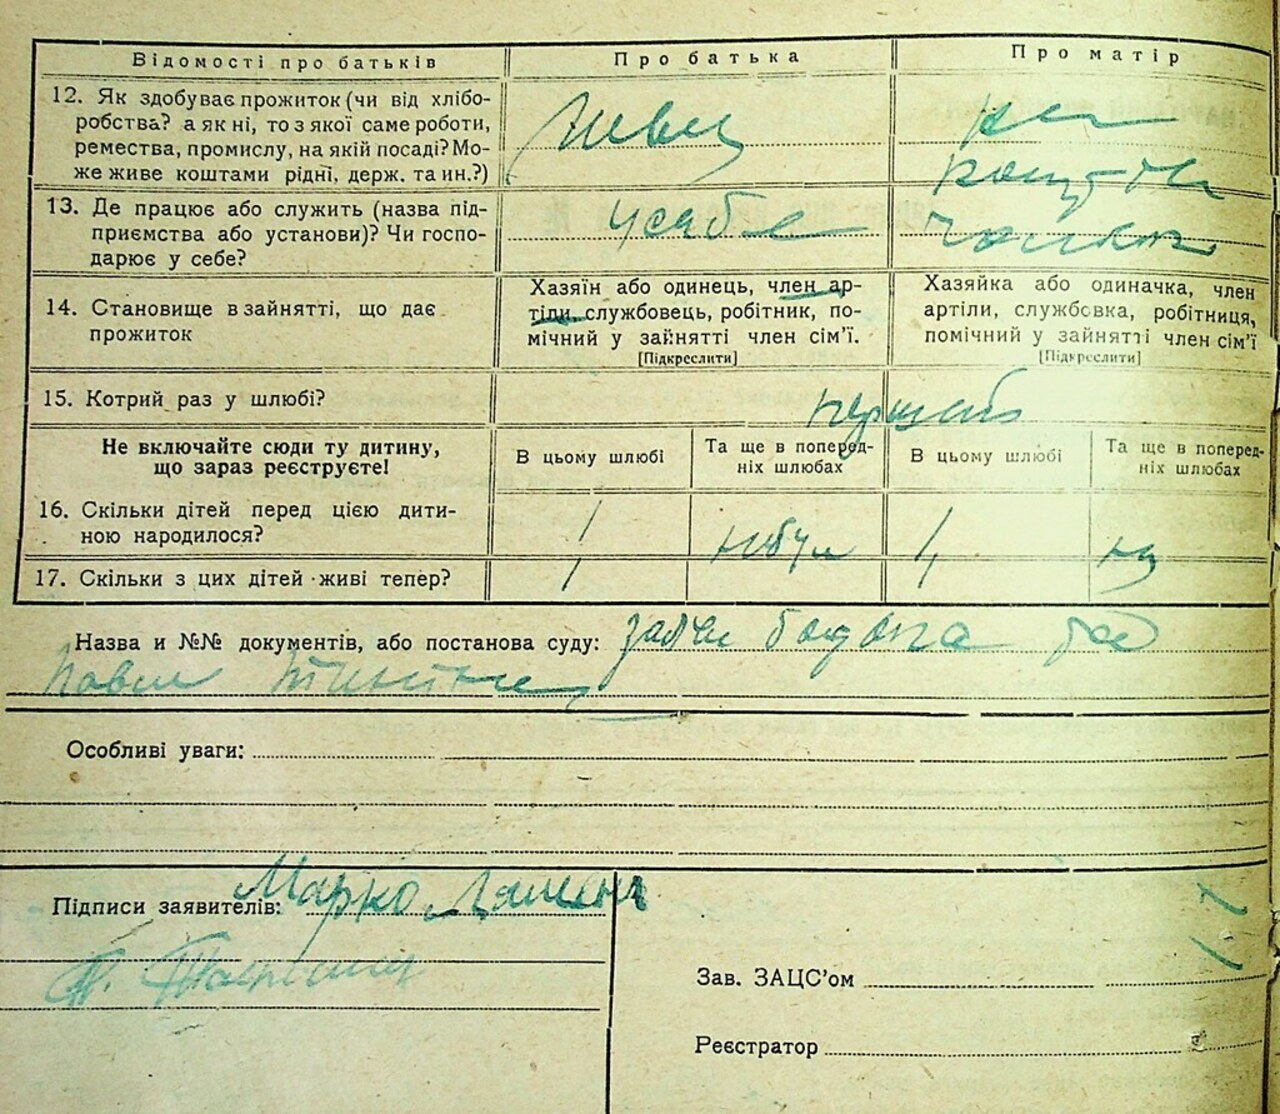 Відомості про батьків Про батька Про матір
12. Як здобуває прожиток (чи від хлібо-
робства? а як ні, то з якої саме роботи,
ремества, промислу, на якій посаді? Мо-
же живе коштами рідні, держ. та ин.?)
швец
на
кошти
13. Де працює або служить (назва під-
приємства або установи)? Чи госпо-
дарює у себе?
у себе
14. Становище в зайнятті, що дає
прожиток
Хазяїн або одинець, член ар-
тіли, службовець, робітник, по-
мічний у зайнятті член сім'ї.
[Підкреслити]
Хазяйка або одиначка, член
артіли, службовка, робітниця,
помічний у зайнятті член сім'ї
[Підкреслити]
15. Котрий раз у шлюбі?
перший
Не включайте сюди ту дитину,
що зараз реєструєте!
В цьому шлюбі
Та ще в поперед-
ніх шлюбах
В цьому шлюбі
Та ще в поперед-
ніх шлюбах
16. Скільки дітей перед цією дити-
ною народилося?
1 1
17. Скільки з цих дітей живі тепер?
1 1
Назва и №№ документів, або постанова суду:
Особливі уваги:
Підписи заявителів: Марко
Зав. ЗАЦС'ом
Реєстратор